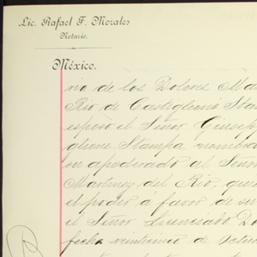 Lic. Rafael F. Morales
Notario.
México.
no de los Dolores Ma
Rio de Castiglione Sta
esposo el Señor Giusep
glione Stampa nombra
en apoderado al Seño
Martinez del Rio, que
el poder a favor de su
el Señor Licenciado Do
fecha veintiuno de Octu